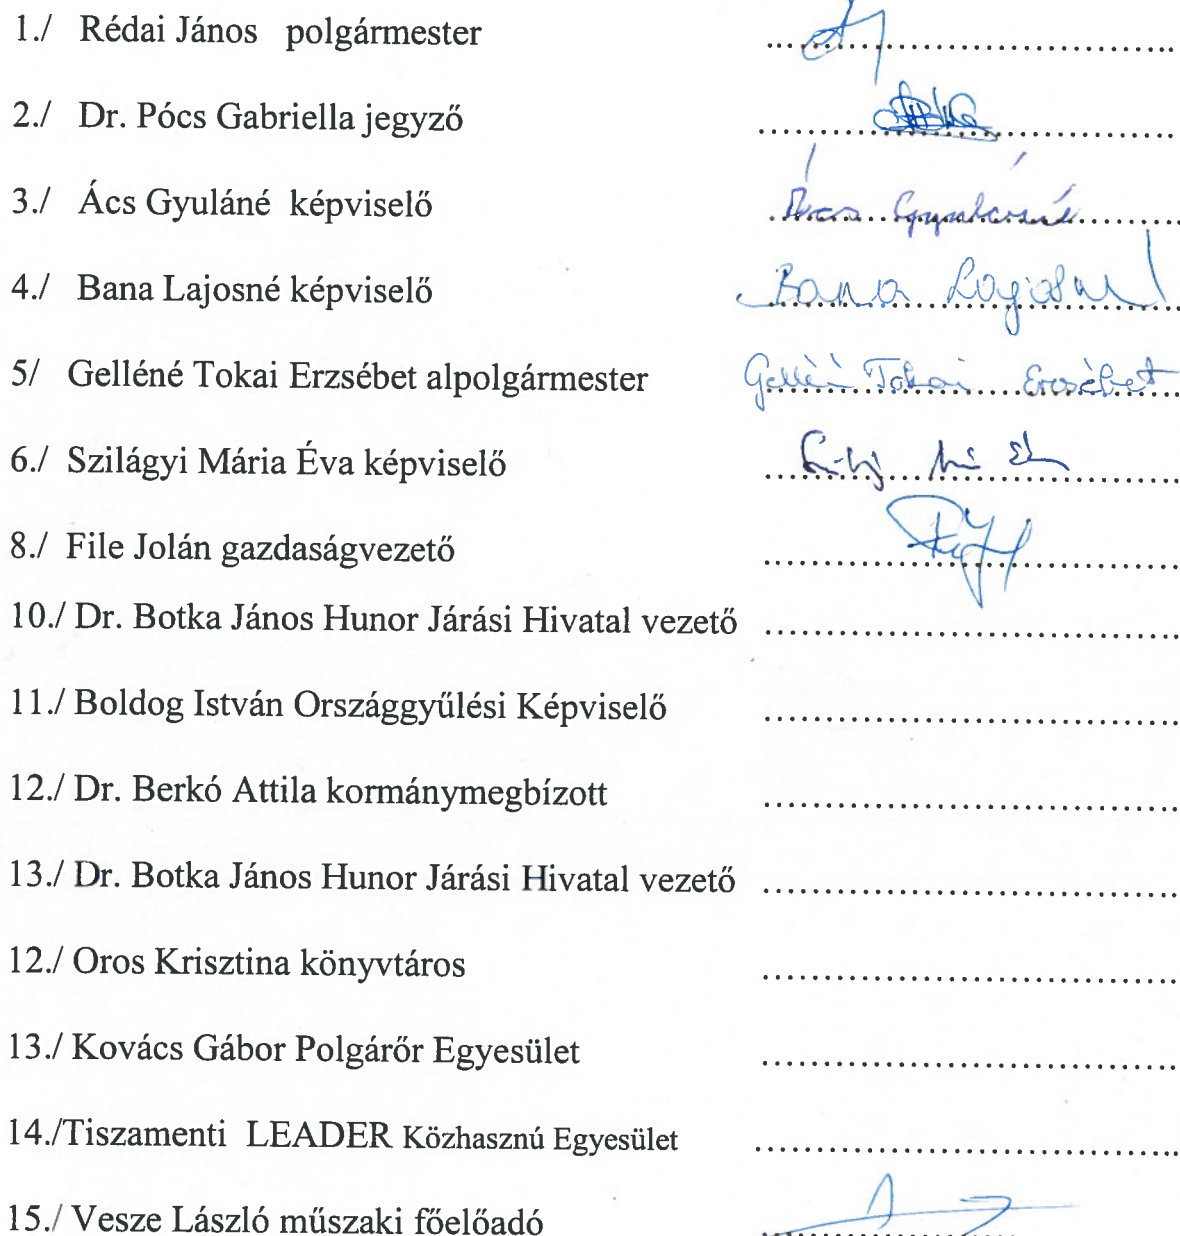 1./ Rédai János polgármester ....................
2./ Dr. Pócs Gabriella jegyző ....................
3./ Ács Gyuláné képviselő Ács Gyuláné
4./ Bana Lajosné képviselő Bana Lajosné
5/ Gelléné Tokai Erzsébet alpolgármester Gelléné Tokai Erzsébet
6./ Szilágyi Mária Éva képviselő ....................
8./ File Jolán gazdaságvezető ....................
10./ Dr. Botka János Hunor Járási Hivatal vezető ....................
11./ Boldog István Országgyűlési Képviselő ....................
12./ Dr. Berkó Attila kormánymegbízott ....................
13./ Dr. Botka János Hunor Járási Hivatal vezető ....................
12./ Oros Krisztina könyvtáros ....................
13./ Kovács Gábor Polgárőr Egyesület ....................
14./Tiszamenti LEADER Közhasznú Egyesület ....................
15./ Vesze László műszaki főelőadó ....................